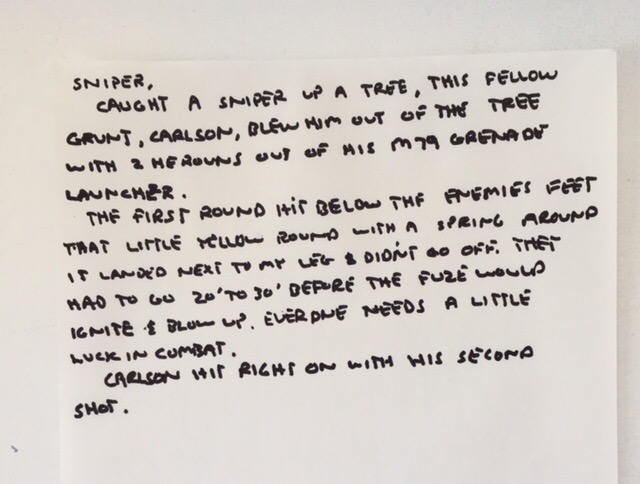 SNIPER,
CAUGHT A SNIPER UP A TREE, THIS FELLOW
GRUNT, CARLSON, BLEW HIM OUT OF THE TREE
WITH 2 HE ROUNS OUT OF HIS M79 GRENADE
LAUNCHER.
THE FIRST ROUND HIT BELOW THE ENEMIES FEET
THAT LITTLE YELLOW ROUND WITH A SPRING AROUND
IT LANDED NEXT TO MY LEG & DIDN'T GO OFF. THEY
HAD TO GO 20' TO 30' BEFORE THE FUZE WOULD
IGNITE & BLOW UP. EVERONE NEEDS A LITTLE
LUCK IN COMBAT.
CARLSON HIT RIGHT ON WITH HIS SECOND
SHOT.